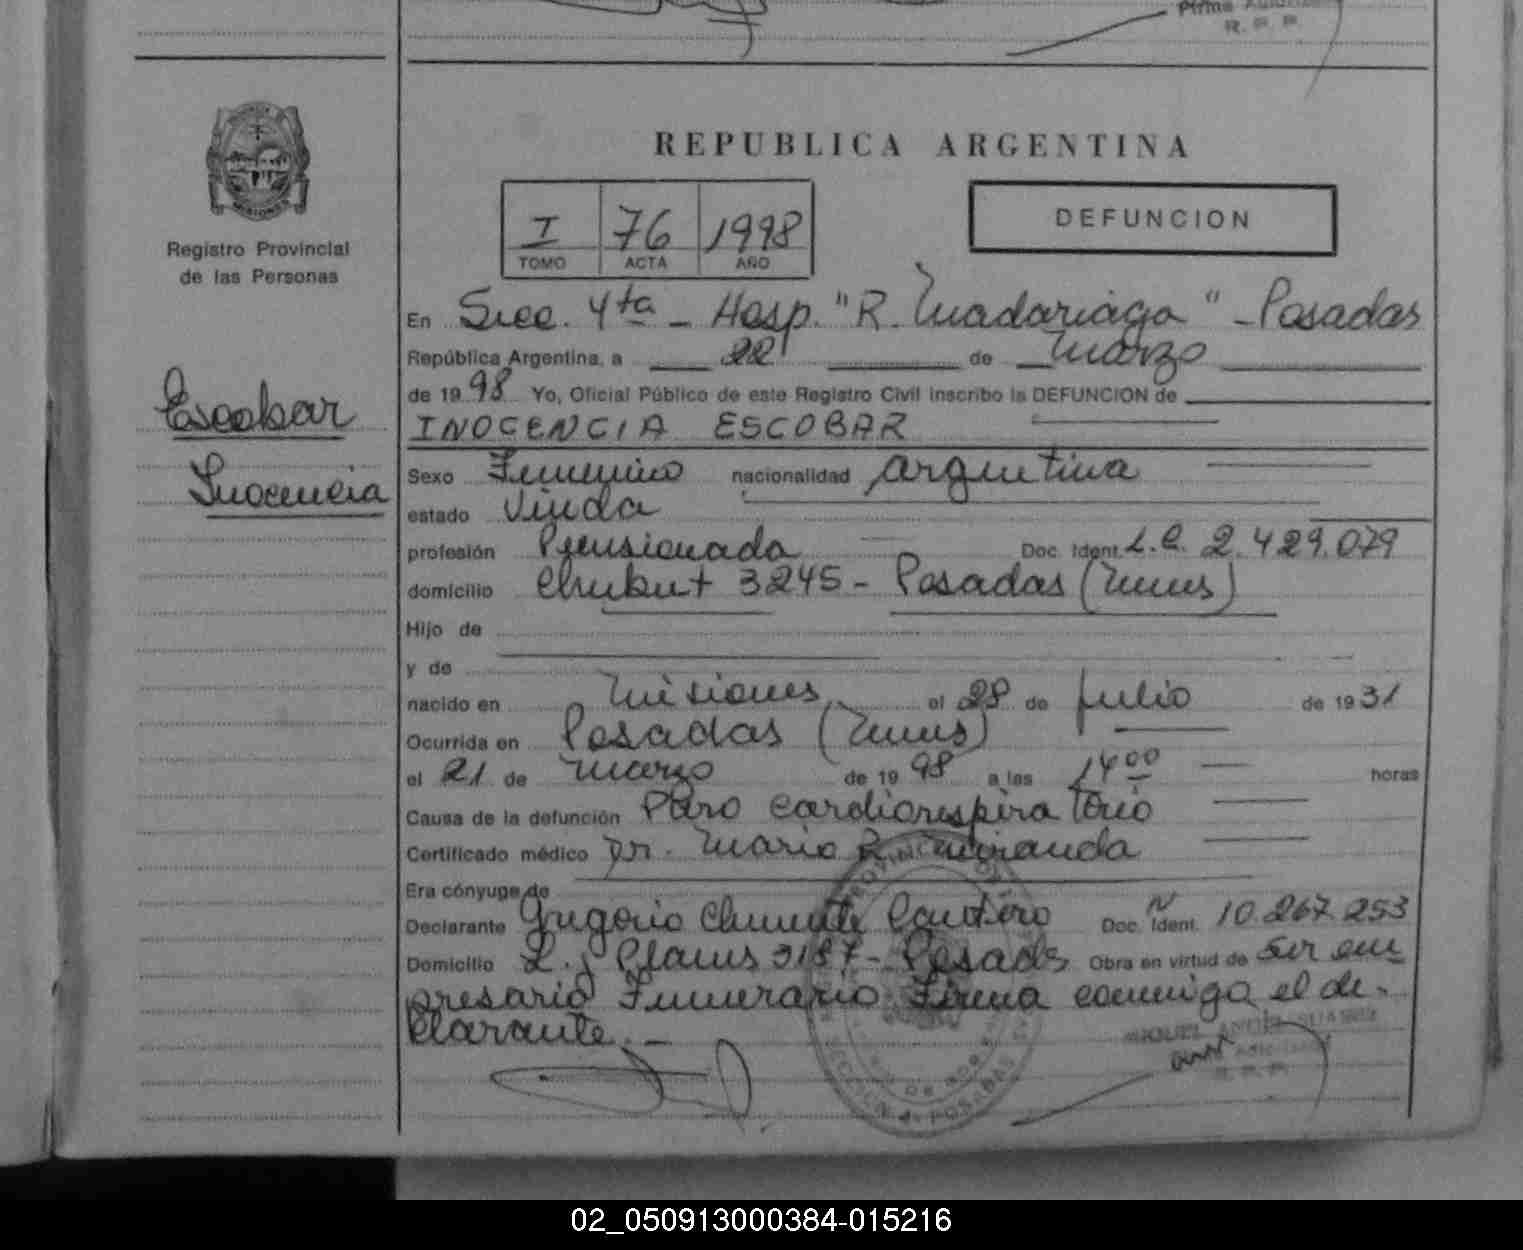 Firma Autorizada
R. P. P.
REPUBLICA ARGENTINA
MISIONES
Registro Provincial
de las Personas
I 76 1998
TOMO ACTA AÑO
DEFUNCION
En Secc. 4ta - Hosp. "R. Madariaga" - Posadas
República Argentina, a 22 de Marzo
de 1998 Yo, Oficial Público de este Registro Civil inscribo la DEFUNCION de
INOCENCIA ESCOBAR
Escobar
Inocencia
Sexo Femenino nacionalidad argentina
estado Viuda
profesión Pensionada Doc. Ident. L.C. 2.429.079
domicilio Chubut 3245 - Posadas (Mnes)
Hijo de
y de
nacido en Misiones el 28 de Julio de 1931
Ocurrida en Posadas (Mnes)
el 21 de Marzo de 1998 a las 14 00 horas
Causa de la defunción Paro cardiorespiratorio
Certificado médico Dr. Mario R. Miranda
Era cónyuge de
Declarante Gregorio Clemente Cantero Doc. Ident. N 10.267.253
Domicilio L. y Planes 3187 - Posadas Obra en virtud de Ser em
presario Funerario. Firma conmigo el de-
clarante. -
MIGUEL ANGEL
R. P. P.
SECCION 4a POSADAS
02_050913000384-015216